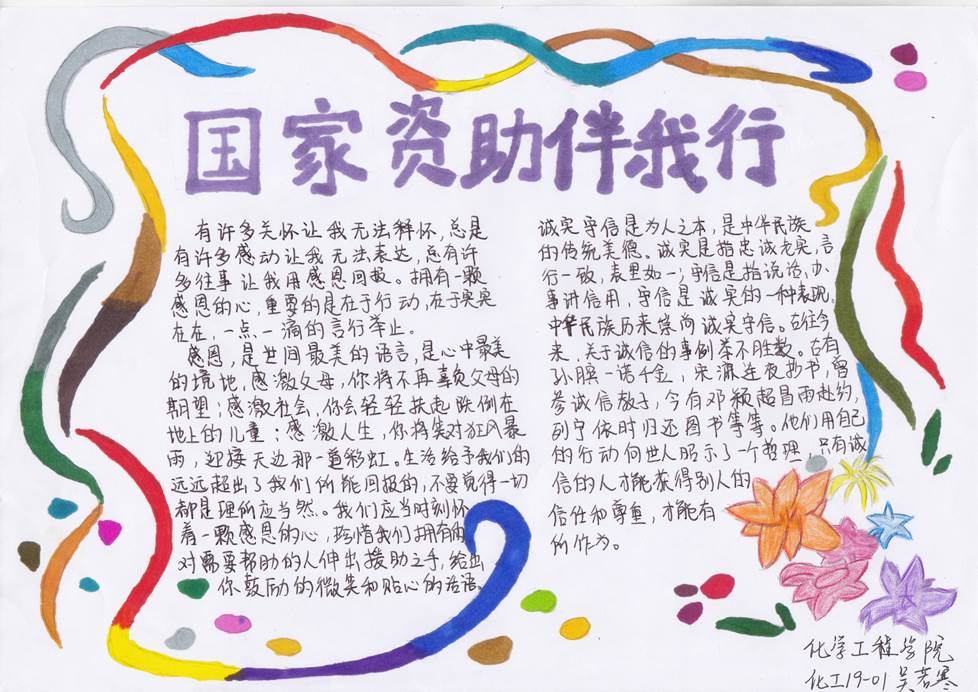 国家资助伴我行
有许多关怀让我无法释怀,总是
有许多感动让我无法表达,总有许
多往事让我用感恩回报。拥有一颗
感恩的心,重要的是在于行动,在于实实
在在,一点一滴的言行举止。
感恩,是世间最美的语言,是心中最美
的境地,感激父母,你将不再辜负父母的
期望;感激社会,你会轻轻扶起跌倒在
地上的儿童;感激人生,你将笑对狂风暴
雨,迎接天边那一道彩虹。生活给予我们的
远远超出了我们所能回报的,不要觉得一切
都是理所应当然。我们应当时刻怀
着一颗感恩的心,珍惜我们拥有的
对需要帮助的人伸出援助之手,给出
你鼓励的微笑和贴心的话语。
诚实守信是为人之本,是中华民族
的传统美德。诚实是指忠诚老实,言
行一致,表里如一;守信是指说话、办
事讲信用,守信是诚实的一种表现。
中华民族历来崇尚诚实守信。古往今
来,关于诚信的事例举不胜数。古有
孙膑一诺千金,宋濂连夜抄书,曾
参诚信教子,今有邓颖超冒雨赴约,
列宁依时归还图书等等。他们用自己
的行动向世人昭示了一个哲理,只有诚
信的人才能获得别人的
信任和尊重,才能有
所作为。
化学工程学院
化工19-01 吴若寒